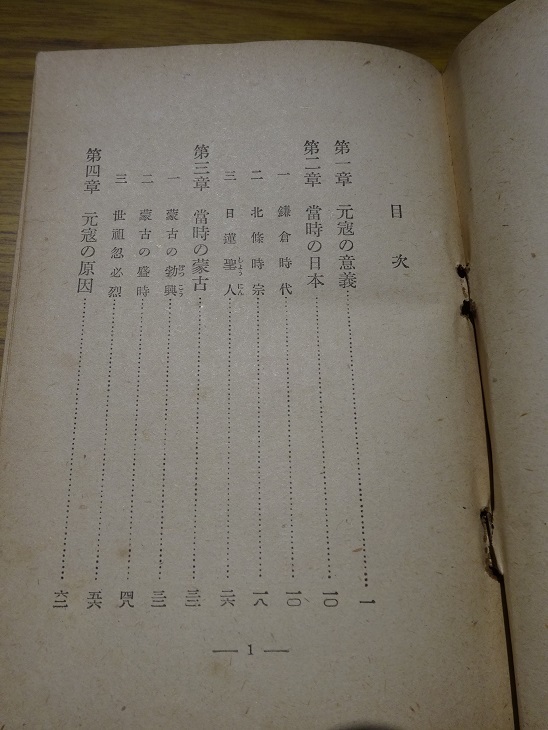 目次
第一章 元寇の意義……一
第二章 當時の日本……一〇
一 鎌倉時代……一〇
二 北條時宗……一八
三 日蓮聖人……二六
第三章 當時の蒙古……三三
一 蒙古の勃興……三三
二 蒙古の盛時……四八
三 世祖忽必烈……五六
第四章 元寇の原因……六二
— 1 —